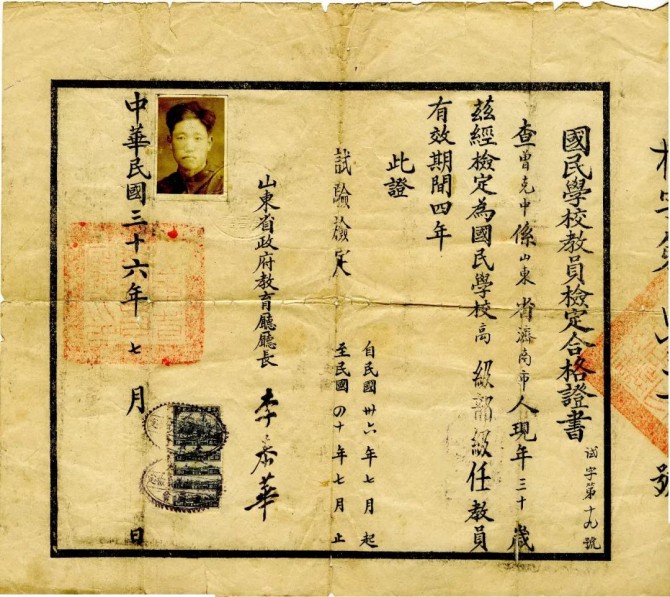 國民學校教員檢定合格證書
試字第十九號
查曾克中係山東省濟南市人現年三十歲
茲經檢定為國民學校高級部級任教員
有效期間四年
此證
試驗檢定
自民國卅六年七月起
至民國四十年七月止
山東省政府教育廳廳長 李泰華
中華民國三十六年七月 日
號